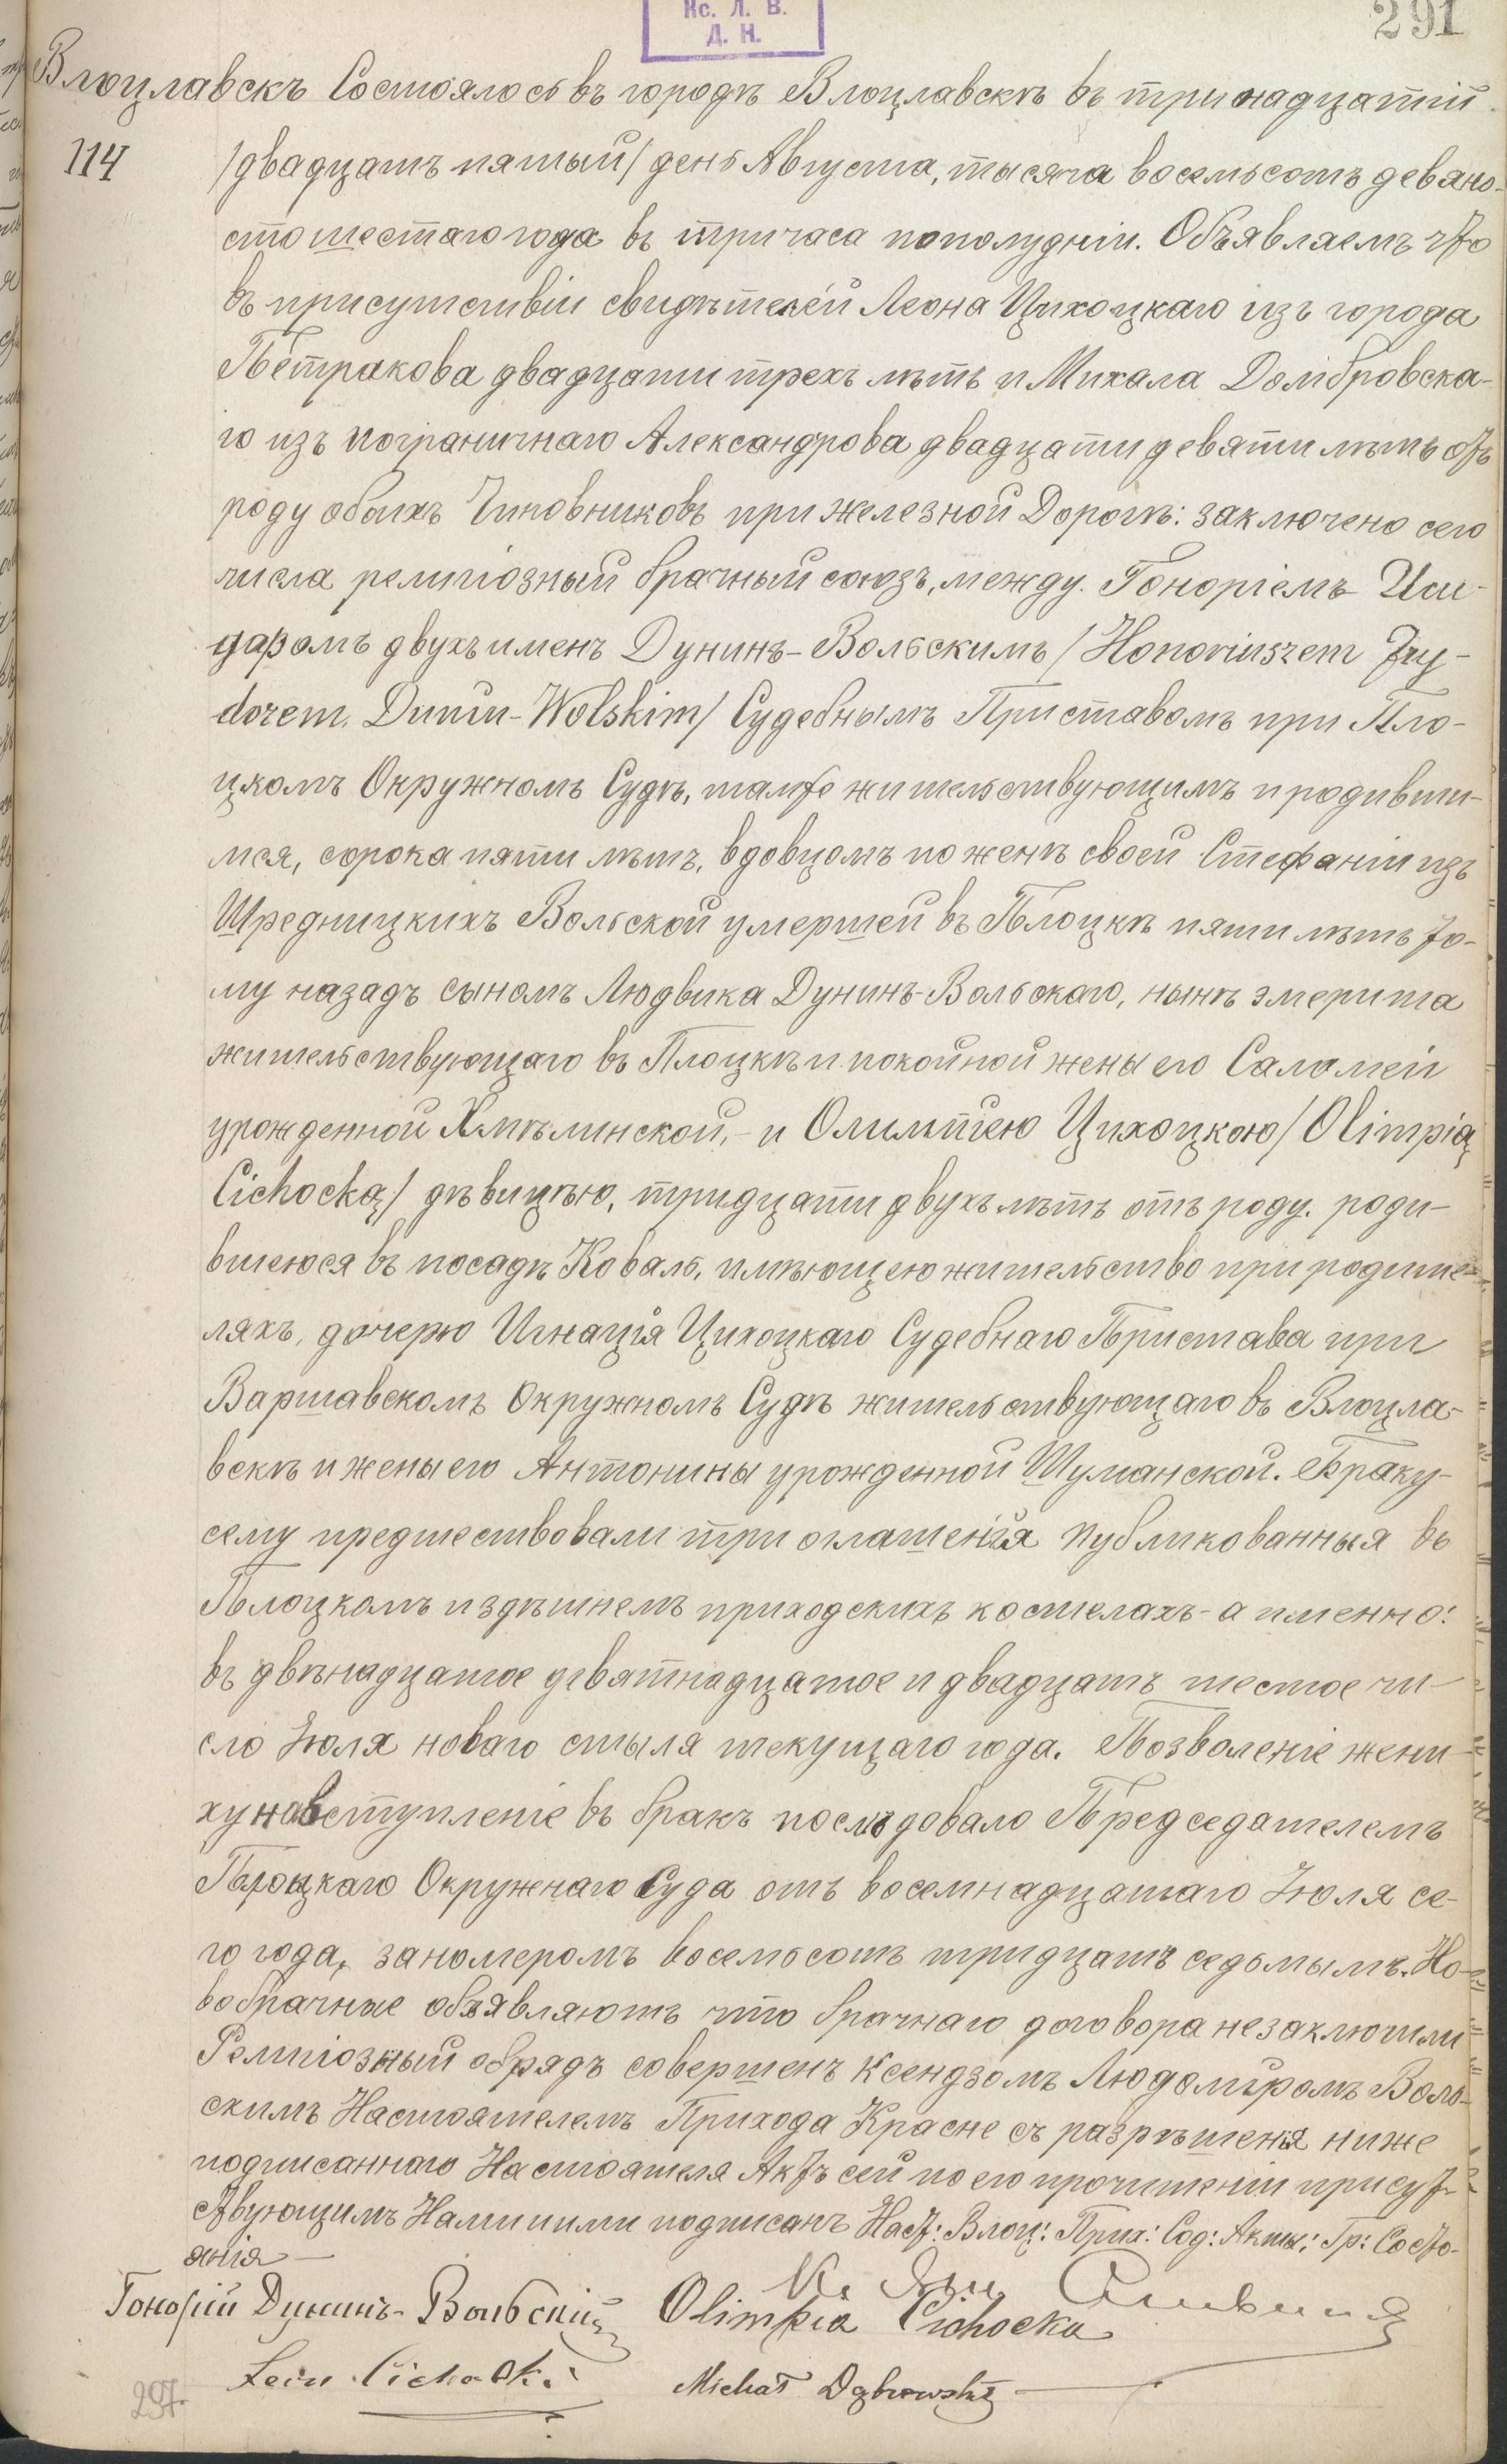 Кс. Л. В.
Д. Н.
291
Влоцлавскъ Состоялось въ городѣ Влоцлавскѣ въ тринадцатій
114 /двадцать пятый/ день Августа, тысяча восемьсотъ девяно-
сто шестаго года въ три часа пополудніи. Объявляемъ что
въ присутствіи свидѣтелей Леона Цихоцкаго изъ города
Петракова двадцати трехъ лѣтъ и Михала Домбровска-
го изъ пограничнаго Александрова двадцати девяти лѣтъ отъ
роду обоихъ Чиновниковъ при железной Дорогѣ: заключено сего
числа религіозный брачный союзъ, между. Гоноріемъ Иси-
даромъ двухъ именъ Дунинъ-Вольскимъ /Honoriuszem Izy-
dorem Dunin-Wolskim/ Судебнымъ Приставомъ при Пло-
цкомъ Окружномъ Судѣ, тамже жительствующимъ и родивши-
мся, сорока пяти лѣтъ, вдовцомъ по женѣ своей Стефаніи изъ
Шредницкихъ Вольской умершей въ Плоцкѣ пяти лѣтъ то-
му назадъ сыномъ Людвика Дунинъ-Вольскаго, нынѣ эмерита
жительствующаго въ Плоцкѣ и покойной жены его Саломеи
урожденной Хмѣлинской, - и Олимпіею Цихоцкою /Olimpią
Cichocką/ дѣвицѣю, тридцати двухъ лѣтъ отъ роду. роди-
вшеюся въ посадѣ Коваль, имѣющею жительство при родите-
ляхъ, дочерю Игнація Цихоцкаго Судебнаго Пристава при
Варшавскомъ Окружномъ Судѣ жительствующаго въ Влоцла-
вскѣ и жены его Антонины урожденной Шуманской. Браку-
сему предшествовали три оглашенія публикованныя въ
Плоцкомъ и здѣшнемъ приходскихъ костелахъ - а именно:
въ двѣнадцатое девятнадцатое и двадцать шестое чи-
сло Іюля новаго стыля текущаго года. Позволеніе жени-
ху на вступленіе въ бракъ послѣдовало Председателемъ
Плоцкаго Окружнаго Суда отъ восемнадцатаго Іюля се-
го года, за номеромъ восемьсотъ тридцать седьмымъ. Но-
вобрачные объявляютъ что брачнаго договора не заключили
Религіозный обрядъ совершенъ Ксендзомъ Людомиромъ Воло-
скимъ Настоятелемъ Прихода Красне съ разрѣшенія ниже
подписаннаго Настоятеля Актъ сей по его прочитеніи присут-
ствующимъ Нами и ими подписанъ Наст: Влоц: Прих: Сод: Акты: Гр: Состо-
янія
Гонорій Дунинъ-Вольскій Olimpia Cichocka
Leon Cichocki Michał Dąbrowski
297.